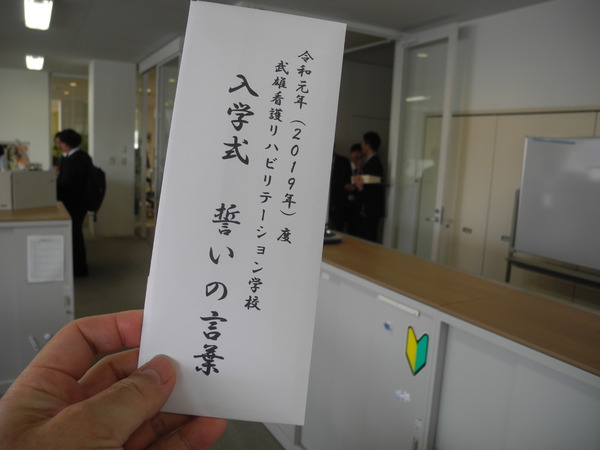 令和元年（2019年）度
武雄看護リハビリテーション学校
入学式　誓いの言葉